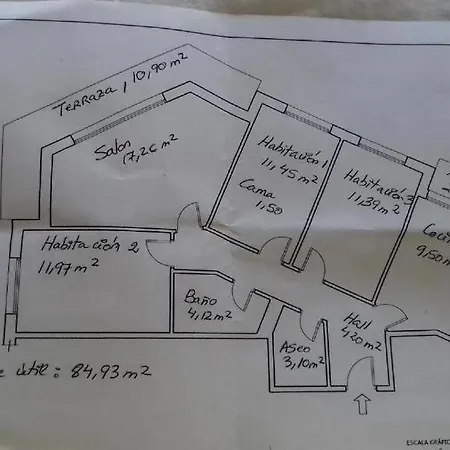 Terraza 1 10,90 m²
Salon
17,26 m²
Habitación 1
11,45 m²
Cama
1,50
Habitación 3
11,39 m²
9,50 m²
Habitación 2
11,97 m²
Baño
4,12 m²
Hall
4,20 m²
Aseo
3,10 m²
útil: 84,93 m²
ESCALA GRÁFIC